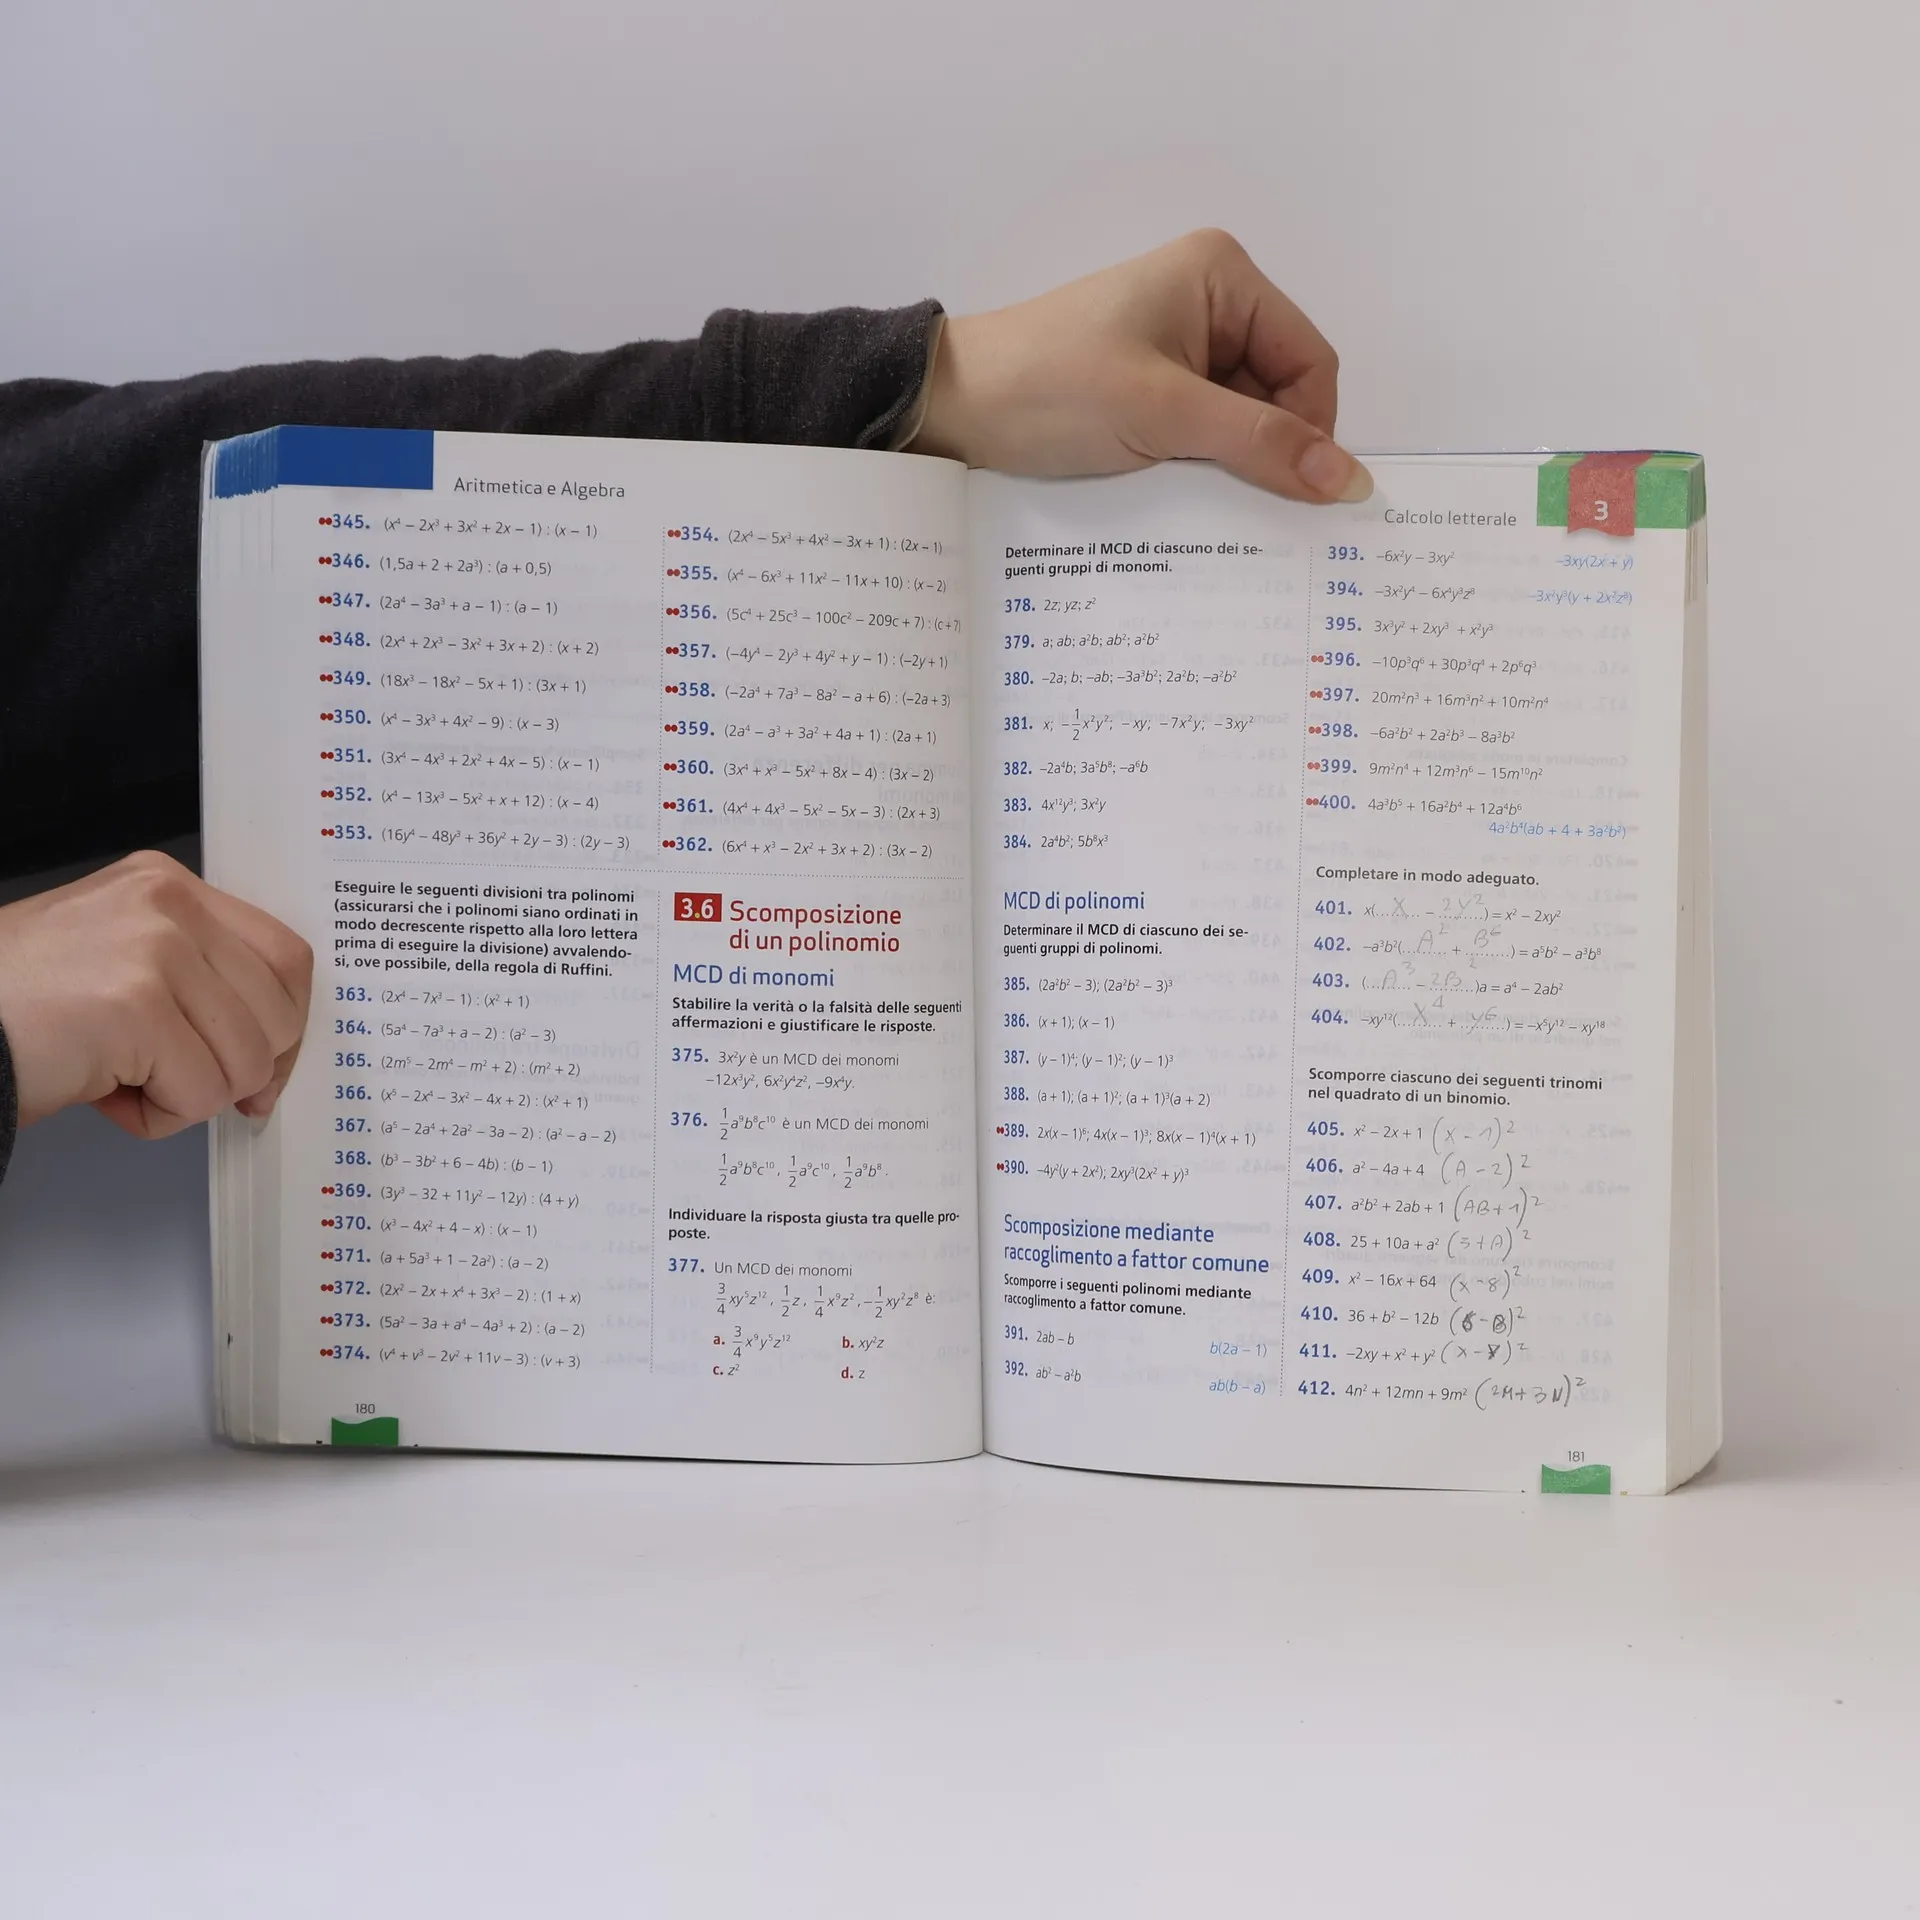 Aritmetica e Algebra
345. (x⁴ – 2x³ + 3x² + 2x – 1) : (x – 1)
346. (1,5a + 2 + 2a³) : (a + 0,5)
347. (2a⁴ – 3a³ + a – 1) : (a – 1)
348. (2x⁴ + 2x³ – 3x² + 3x + 2) : (x + 2)
349. (18x³ – 18x² – 5x + 1) : (3x + 1)
350. (x⁴ – 3x³ + 4x² – 9) : (x – 3)
351. (3x⁴ – 4x³ + 2x² + 4x – 5) : (x – 1)
352. (x⁴ – 13x³ – 5x² + x + 12) : (x – 4)
353. (16y⁴ – 48y³ + 36y² + 2y – 3) : (2y – 3)
354. (2x⁴ – 5x³ + 4x² – 3x + 1) : (2x – 1)
355. (x⁴ – 6x³ + 11x² – 11x + 10) : (x – 2)
356. (5c⁴ + 25c³ – 100c² – 209c + 7) : (c + 7)
357. (–4y⁴ – 2y³ + 4y² + y – 1) : (–2y + 1)
358. (–2a⁴ + 7a³ – 8a² – a + 6) : (–2a + 3)
359. (2a⁴ – a³ + 3a² + 4a + 1) : (2a + 1)
360. (3x⁴ + x³ – 5x² + 8x – 4) : (3x – 2)
361. (4x⁴ + 4x³ – 5x² – 5x – 3) : (2x + 3)
362. (6x⁴ + x³ – 2x² + 3x + 2) : (3x – 2)
Eseguire le seguenti divisioni tra polinomi
(assicurarsi che i polinomi siano ordinati in
modo decrescente rispetto alla loro lettera
prima di eseguire la divisione) avvalendo-
si, ove possibile, della regola di Ruffini.
363. (2x⁴ – 7x³ – 1) : (x² + 1)
364. (5a⁴ – 7a³ + a – 2) : (a² – 3)
365. (2m⁵ – 2m⁴ – m² + 2) : (m² + 2)
366. (x⁵ – 2x⁴ – 3x² – 4x + 2) : (x² + 1)
367. (a⁵ – 2a⁴ + 2a² – 3a – 2) : (a² – a – 2)
368. (b³ – 3b² + 6 – 4b) : (b – 1)
369. (3y³ – 32 + 11y² – 12y) : (4 + y)
370. (x³ – 4x² + 4 – x) : (x – 1)
371. (a + 5a³ + 1 – 2a²) : (a – 2)
372. (2x² – 2x + x⁴ + 3x³ – 2) : (1 + x)
373. (5a² – 3a + a⁴ – 4a³ + 2) : (a – 2)
374. (v⁴ + v³ – 2v² + 11v – 3) : (v + 3)
180
3.6 Scomposizione
di un polinomio
MCD di monomi
Stabilire la verità o la falsità delle seguenti
affermazioni e giustificare le risposte.
375. 3x²y è un MCD dei monomi
–12x³y², 6x²y⁴z², –9x⁴y.
376. 1/2 a⁹b⁸c¹⁰ è un MCD dei monomi
1/2 a⁹b⁸c¹⁰, 1/2 a⁹c¹⁰, 1/2 a⁹b⁸.
Individuare la risposta giusta tra quelle pro-
poste.
377. Un MCD dei monomi
3/4 xy⁵z¹², 1/2 z, 1/4 x⁹z², –1/2 xy²z⁸ è:
a. 3/4 x⁹y⁵z¹² b. xy²z
c. z² d. z
Calcolo letterale 3
Determinare il MCD di ciascuno dei se-
guenti gruppi di monomi.
378. 2z; yz; z²
379. a; ab; a²b; ab²; a²b²
380. –2a; b; –ab; –3a³b²; 2a²b; –a²b²
381. x; –1/2 x²y²; –xy; –7x²y; –3xy²
382. –2a⁴b; 3a⁵b⁸; –a⁶b
383. 4x¹²y³; 3x²y
384. 2a⁴b²; 5b⁸x³
MCD di polinomi
Determinare il MCD di ciascuno dei se-
guenti gruppi di polinomi.
385. (2a²b² – 3); (2a²b² – 3)³
386. (x + 1); (x – 1)
387. (y – 1)⁴; (y – 1)²; (y – 1)³
388. (a + 1); (a + 1)²; (a + 1)³(a + 2)
389. 2x(x – 1)⁶; 4x(x – 1)³; 8x(x – 1)⁴(x + 1)
390. –4y²(y + 2x²); 2xy³(2x² + y)³
Scomposizione mediante
raccoglimento a fattor comune
Scomporre i seguenti polinomi mediante
raccoglimento a fattor comune.
391. 2ab – b b(2a – 1)
392. ab² – a²b ab(b – a)
393. –6x²y – 3xy² –3xy(2x + y)
394. –3x²y⁴ – 6x⁴y³z⁸ –3x²y³(y + 2x²z⁸)
395. 3x³y² + 2xy³ + x²y³
396. –10p³q⁶ + 30p³q⁴ + 2p⁶q³
397. 20m²n³ + 16m³n² + 10m²n⁴
398. –6a²b² + 2a²b³ – 8a³b²
399. 9m²n⁴ + 12m³n⁶ – 15m¹⁰n²
400. 4a³b⁵ + 16a²b⁴ + 12a⁴b⁶
4a²b⁴(ab + 4 + 3a²b²)
Completare in modo adeguato.
401. x(... X ... – ... 2Y² ...) = x² – 2xy²
402. –a³b²(... A² ... + ... B⁶ ...) = a⁵b² – a³b⁸
403. (... A³ ... – ... 2B² ...)a = a⁴ – 2ab²
404. –xy¹²(... X⁴ ... + ... y⁶ ...) = –x⁵y¹² – xy¹⁸
Scomporre ciascuno dei seguenti trinomi
nel quadrato di un binomio.
405. x² – 2x + 1 (X – 1)²
406. a² – 4a + 4 (A – 2)²
407. a²b² + 2ab + 1 (AB + 1)²
408. 25 + 10a + a² (5 + A)²
409. x² – 16x + 64 (x – 8)²
410. 36 + b² – 12b (6 – B)²
411. –2xy + x² + y² (x – Y)²
412. 4n² + 12mn + 9m² (2M + 3N)²
181